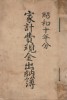 昭和十年分
家計費現金出納簿